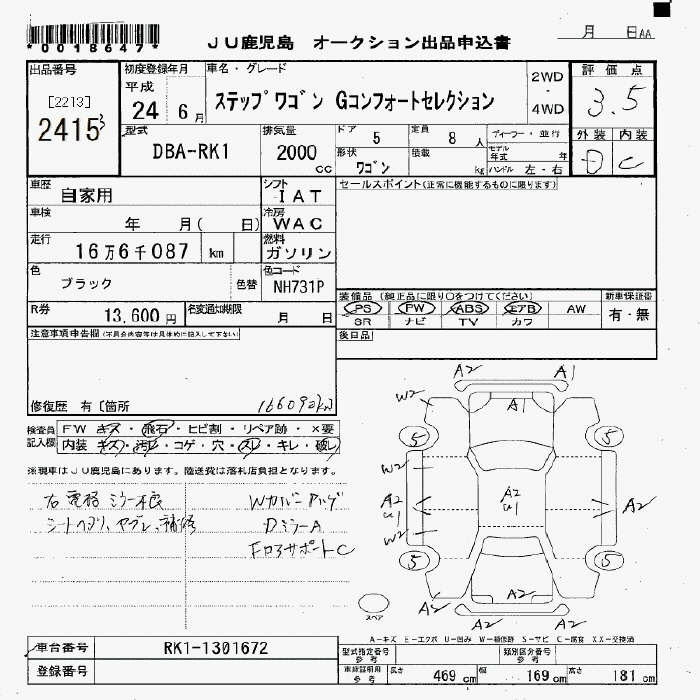 *0018647*
JU鹿児島 オークション出品申込書
月 日AA
出品番号 初度登録年月 車名・グレード 2WD ・ 4WD 評価点
[2213] 平成
2415 3 24 6月 ステップワゴン Gコンフォートセレクション 3.5
型式 排気量 ドア 定員 ディーラー・並行 外装 内装
DBA-RK1 2000cc 5 8人 モデル年式 年 D C
形状 積載 ハンドル
ワゴン kg 左・右
車歴 シフト セールスポイント(正常に機能するものに限ります)
自家用 IAT
車検 冷房
年 月( 日) WAC
走行 燃料
16万6千087 km ガソリン
色 色替 色コード
ブラック NH731P
装備品(純正品に限り○をつけてください) 新車保証書
R券 名変通知期限 PS PW ABS エアB AW 有・無
13,600円 月 日 SR ナビ TV カワ
注意事項申告欄(不具合内容等は具体的に記入して下さい) 後日品
修復歴 有[箇所 166092km
検査員 FW キズ・飛石・ヒビ割・リペア跡・×要
記入欄 内装 キズ・汚レ・コゲ・穴・スレ・キレ・破レ
※現車はJU鹿児島にあります。陸送費は落札店負担となります。
右電格ミラー不良 Wカバーアルゲ
シートヘタリ、ヤブレ、補修 DミラーA
FロアサポートC
A2 A1
W2 A1
5 5
W2
A2 A2 A2
U1 U1
W2
5 5
A2 A2 A2
A2
スペア
A-キズ E-エクボ U-凹み W-補修跡 S-サビ C-腐食 XX-交換済
車台番号 RK1-1301672 型式指定番号 参考 類別区分番号 参考
登録番号 車検証明用 参考 長さ 469cm 幅 169cm 高さ 181cm